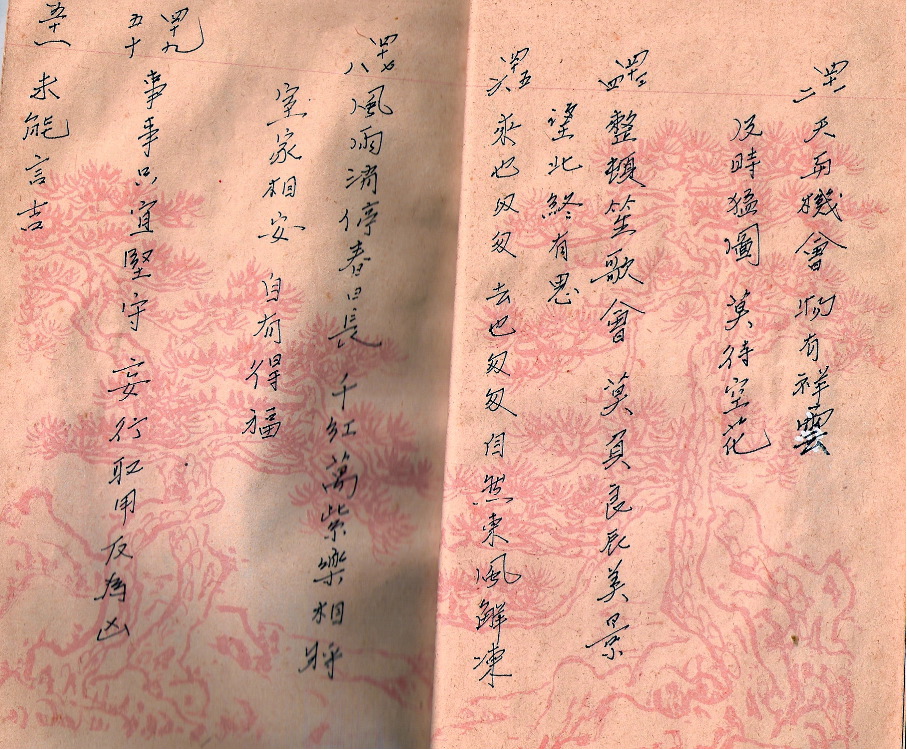 四十一
二 天機會 物有祥雲
及時猛圖 莫待空花
四十三
四 整頓笙歌會 莫負良辰美景
望此終有
四十五
六 來也匆匆 去也匆匆 自然東風解凍
四十七
八 風雨停春日長 千紅萬紫樂相將
室家相安 自有得福
四十九
五十 事事只宜堅守 妄行取用反為凶
五十一 未能言吉